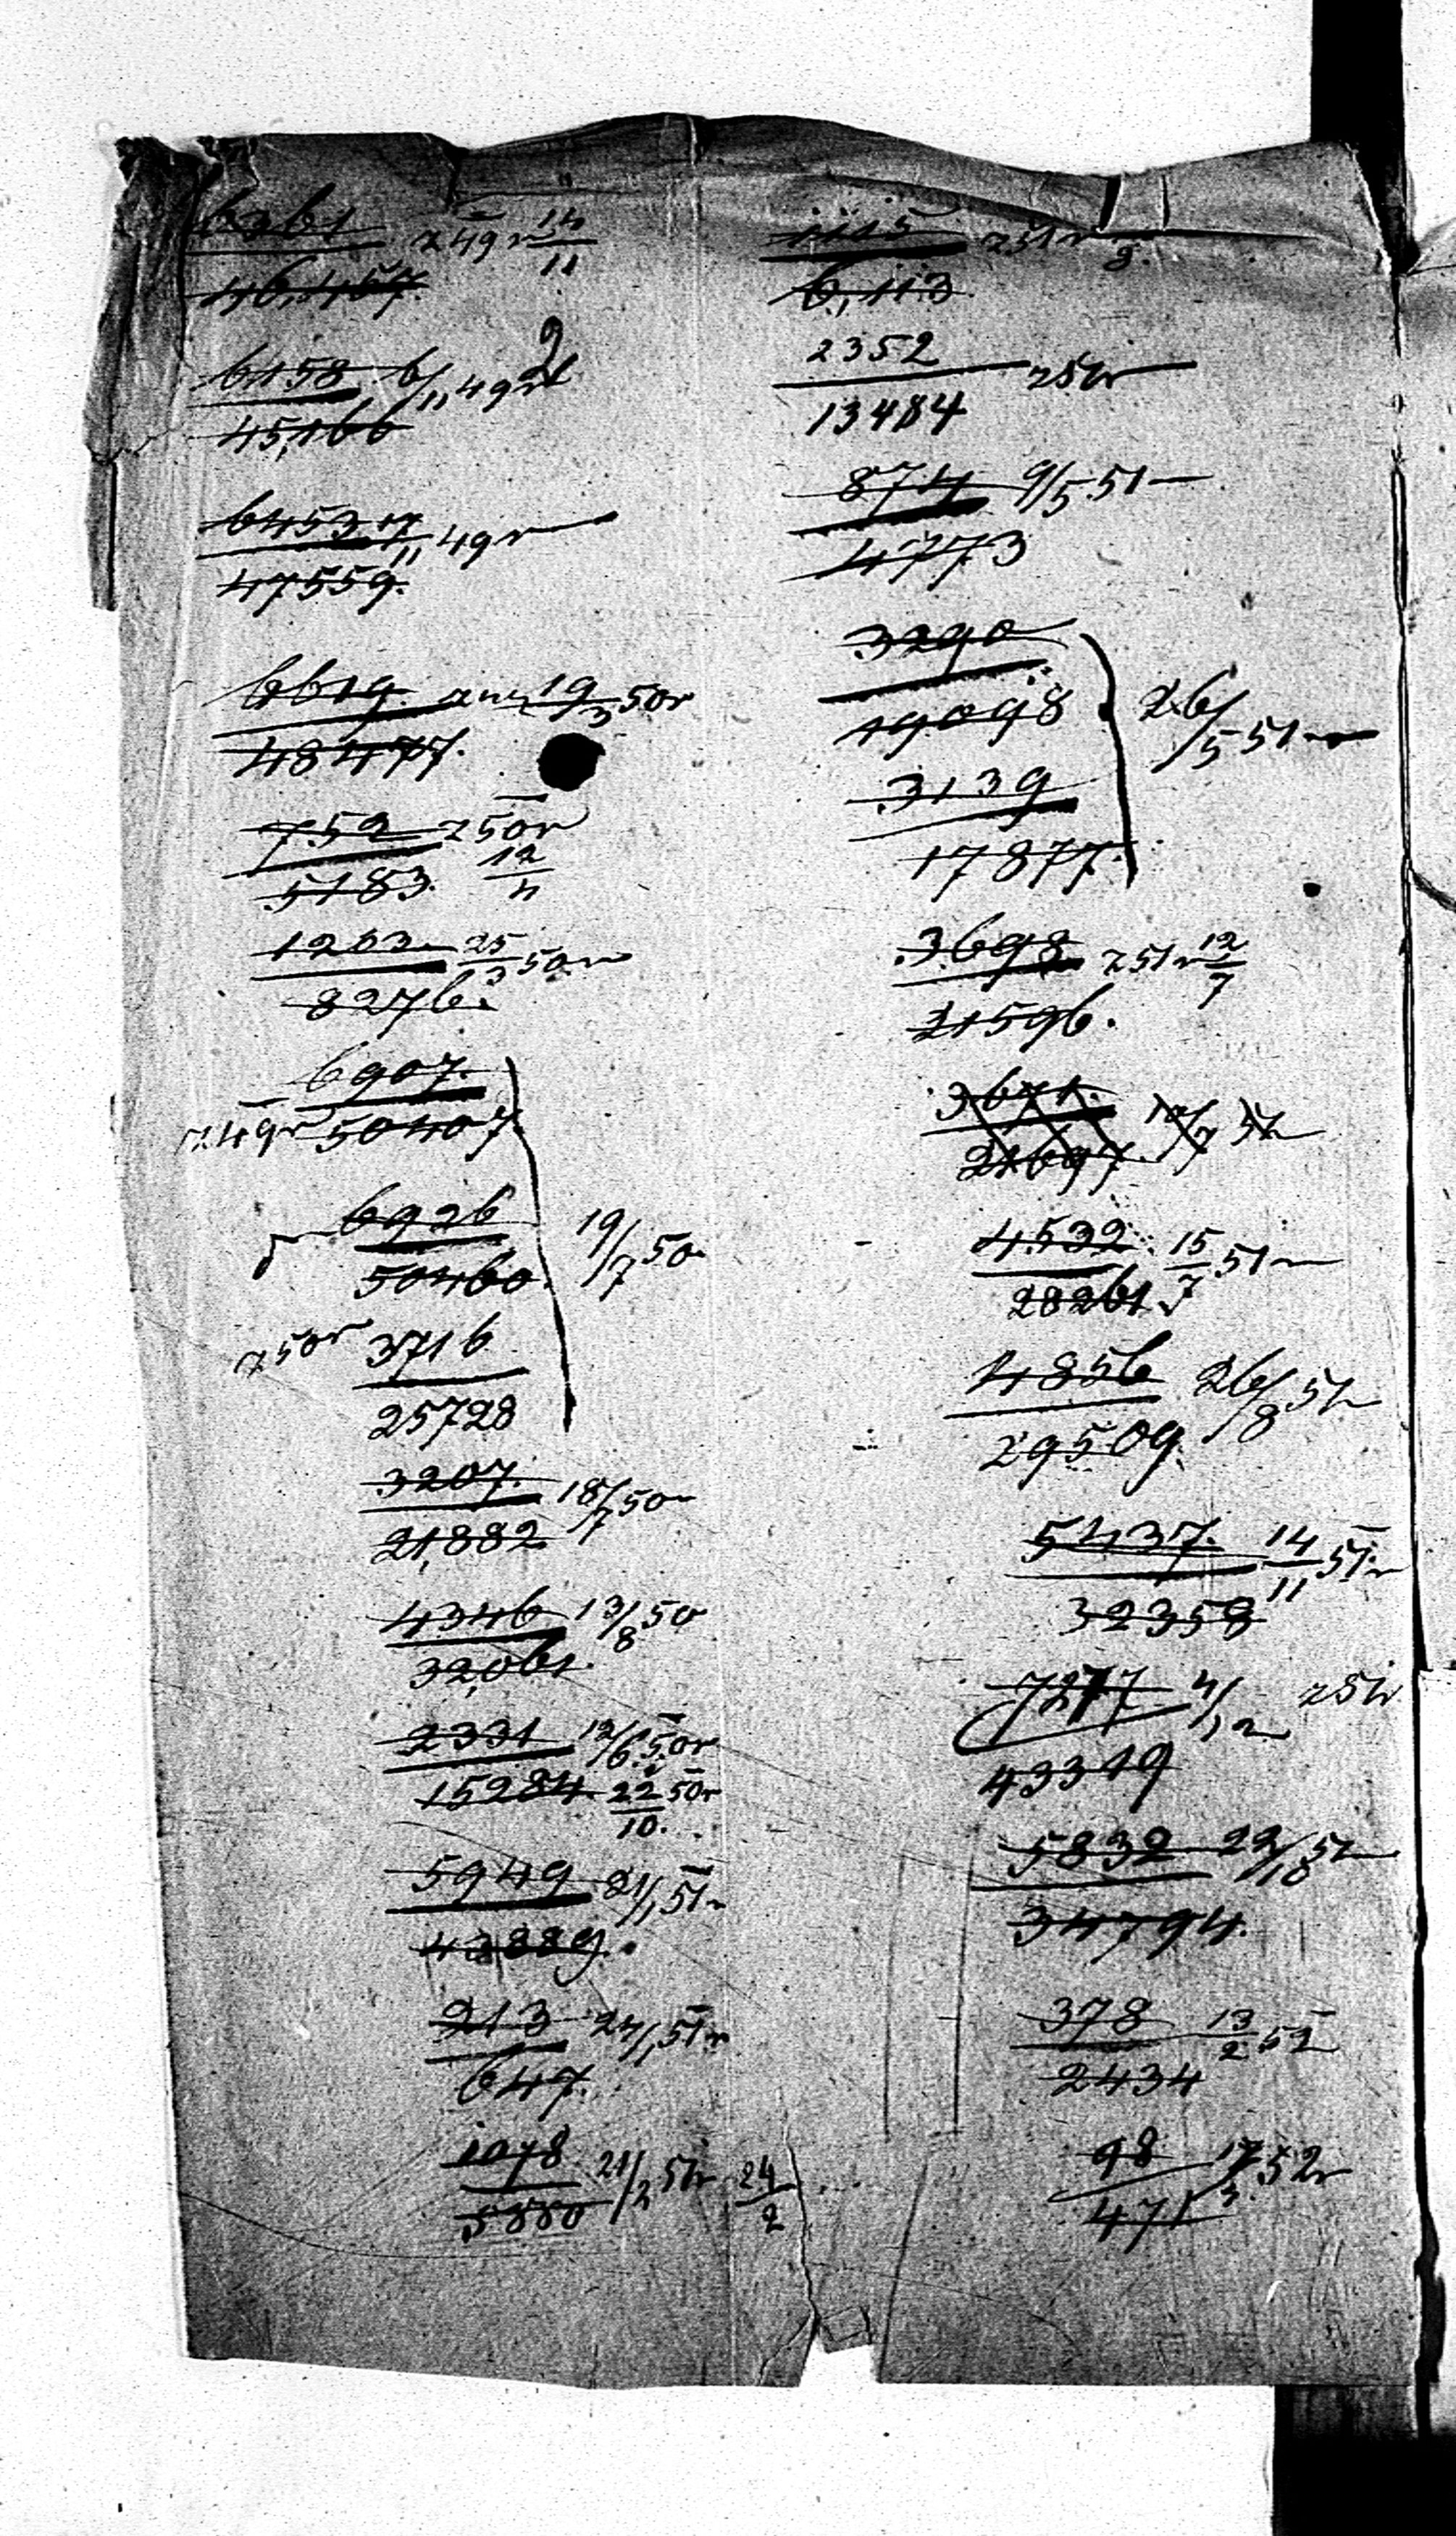 6761 249r 14/11
46,467.
6158 6/11 49r
45,166
6453 17/11 49r
47559.
6619. 19/3 50r
48477.
752 250r
12/4
5183.
1203. 25/3 50r
8276.
6907.
249r 50407
6926
50460. 19/7 50
250r 3716
25728
3207. 18/7 50
21,882
4346 13/8 50
32,061.
2331 12/6 50r
15284 22/10. 50r
5949 21/1 51r
43889.
213 24/1 51r
647.
1078 21/2 51r 24/2
5880
1115 251r
8.
6,113
2352
251r
13484
874 9/5 51
4773
3290
19098 26/5 51
3139
17877.
3698 251r 12/7
21596.
3671.
21697.
4532 15/7 51
28261
4856 26/8 51
29509.
5437. 14/11 51r
32358
7277 4/12 251r
43319
5832 22/18 51
34794.
378 13/2 52
2434
98 17/3. 52r
471